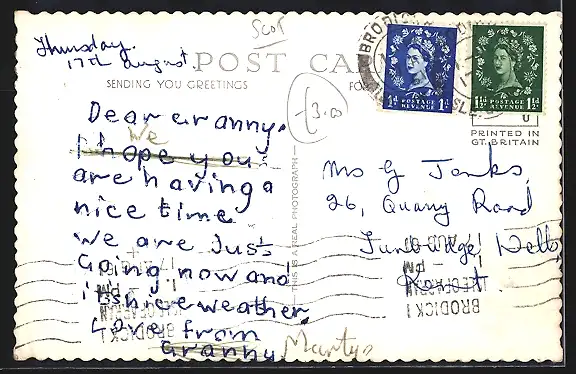 Scot
Thursday.
17th August
POST CARD
SENDING YOU GREETINGS
FO
(3.00
Dear Granny.
We
I hope you
are having a
nice time
we are Just
Going now and
its shice weather
Love from
Granny Martyn
THIS IS A REAL PHOTOGRAPH
BRODICK
1D POSTAGE REVENUE 1D
1½D POSTAGE REVENUE 1½D
PRINTED IN
GT. BRITAIN
Mrs G Jenks,
26, Quarry Road
Tunbridge Wells
Kent.
BRODICK
ISLE OF ARRAN
PM
BRODICK
ISLE OF ARRAN
PM